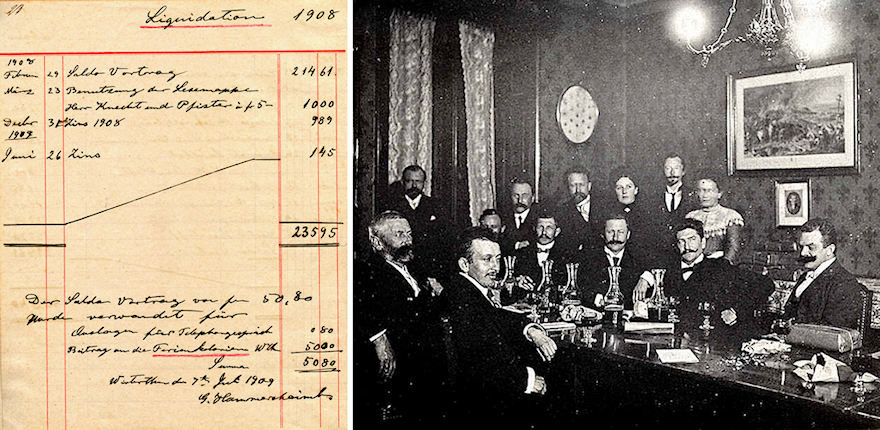 29
Liquidation 1908
1908
Februar 29 Saldo Vortrag 214 61.
März 23 Benutzung der Lesemappe
Herr Knecht und Pfister à fr 5- 10 00
Dezbr 31 Zins 1908 9 89
1909
Juni 26 Zins 1 45
235 95
Der Saldo Vortrag von fr 50,80
wurde verwendet für
Auslagen für Telephongespräch 0 80
Beitrag an die Ferienkolonien Wth 50 00
Summa 50 80
Winterthur den 7ten Juli 1909
G.